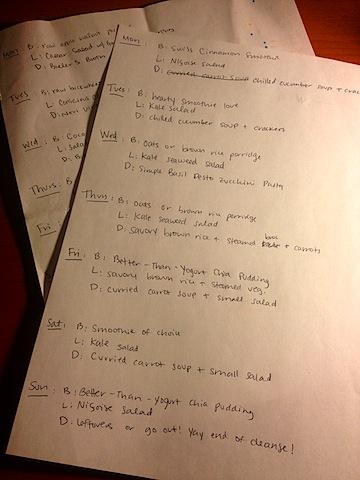 Mon: B: Swiss Cinnamon Smoothie
L: Niçoise Salad
D: Curried carrot soup chilled cucumber soup + crac
Tues: B: hearty smoothie bowl
L: Kale Salad
D: chilled cucumber soup + crackers
Wed: B: Oats or brown rice porridge
L: Kale seaweed salad
D: Simple Basil Pesto zucchini Pasta
Thurs: B: oats or brown rice porridge
L: Kale seaweed salad
D: savory brown rice + steamed + carrots
Fri: B: Better-Than-Yogurt Chia Pudding
L: savory brown rice + steamed veg.
D: curried carrot soup + small salad
Sat: B: Smoothie of choice
L: Kale salad
D: Curried carrot soup + small salad
Sun: B: Better-Than-Yogurt Chia pudding
L: Niçoise Salad
D: leftovers or go out! Yay end of cleanse!
Mon: B: raw
L: Caesar Salad w/
D:
Tues: B: raw
L:
D:
Wed: B: Coco
L: Sala
D: B
Thurs: B
Fri: